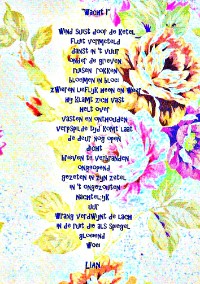 "Wacht !"
Wind suist door de ketel
fluit vermeteld
danst in 't vuur
onder de grieven
ruisen rokken
bloemen in bloei
zwieren lieflijk heen en weer
hij klampt zich vast
helt over
vasten en onthouden
verspilde tijd komt laat
de deur nog open
dicht
brieven te verbranden
ongeopend
gezeten in zijn zetel
in 't ongezouten
nachtelijk
uur
wrang verdwijnt de lach
in de ruit die als spiegel
gloeiend
woei
Lian